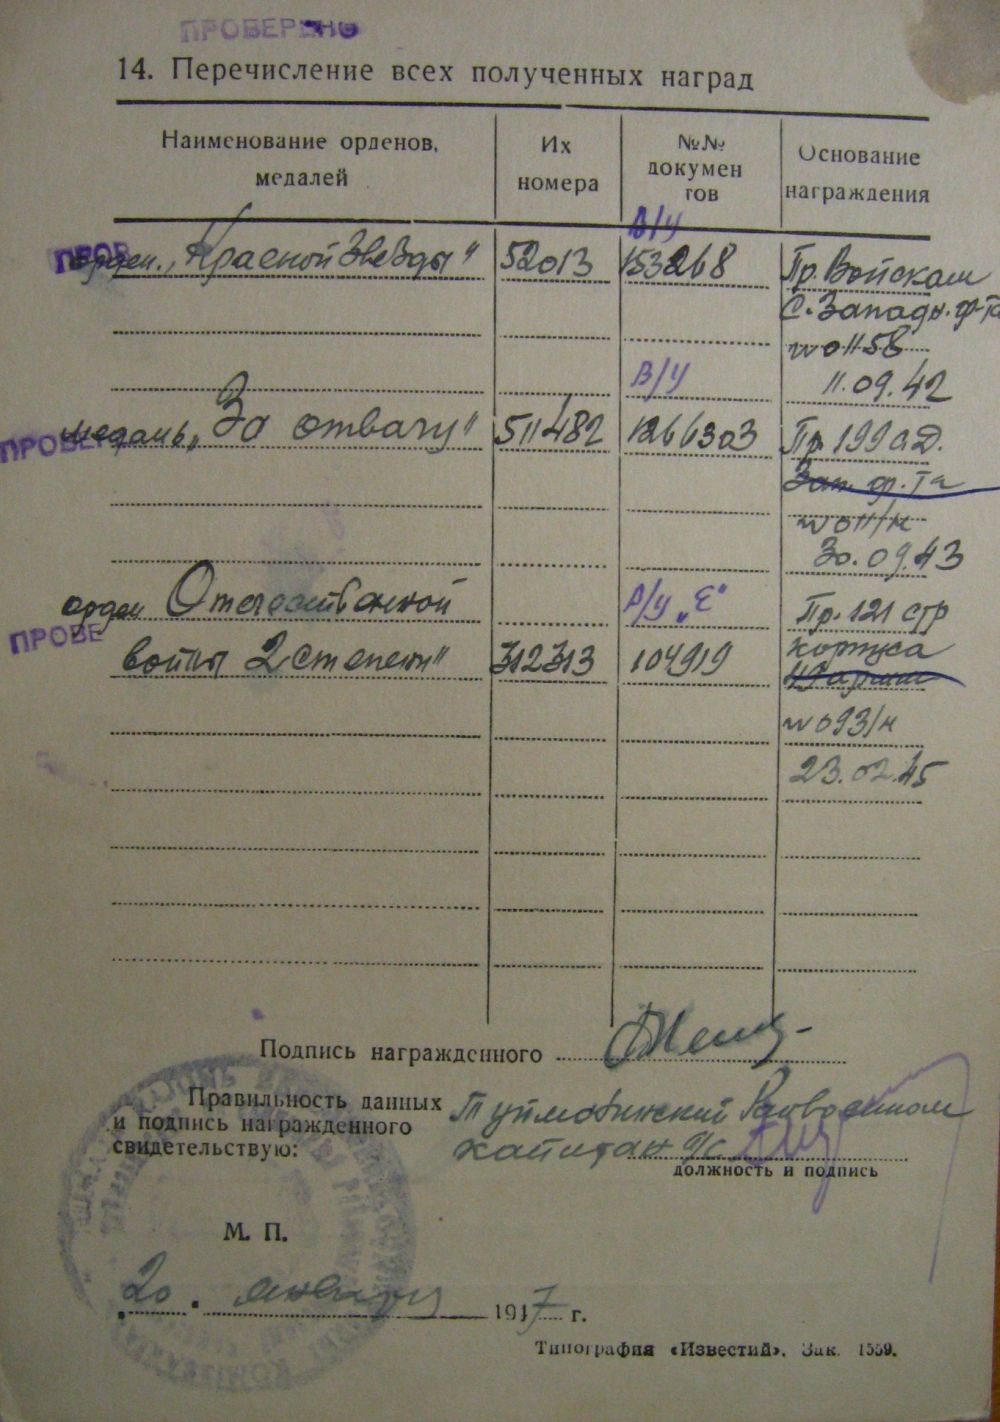 ПРОВЕРЕНО
14. Перечисление всех полученных наград
Наименование орденов, медалей
Их номера
№№ докумен тов
Основание награждения
ПРОВ
В/У
орден „Красной Звезды" 52013 153268 Пр. Войскам
С. Западн. ф-та
№ 01158
В/У 11.09.42
ПРОВЕ
медаль „За отвагу" 511482 1266303 Пр. 199 с.д.
Зап. ф-та
№ 011/н
30.09.43
орден Отечественной А/У „Е" Пр. 121 стр
ПРОВЕ
войны 2 степени" 312313 104919 корпуса
№ 093/н
23.02.45
Подпись награжденного
Правильность данных
и подпись награжденного
свидетельствую:
Туймазинский Райвоенком
капитан а/с
должность и подпись
М. П.
20. января 1947 г.
Типография «Известий». Зак. 1559.